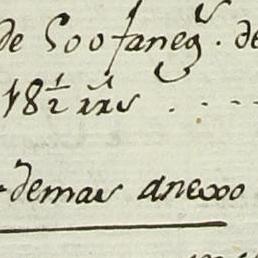 de 600 faneg.s de
18 1/2 rr.s
demas anexo